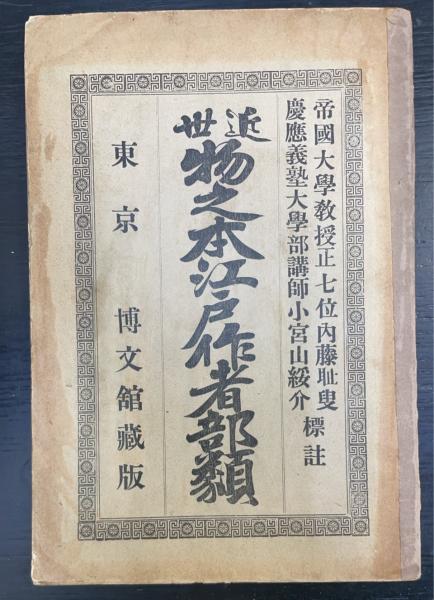 帝國大學教授正七位內藤耻叟
慶應義塾大學部講師小宮山綏介
標註
近世
物之本江戶作者部類
東京 博文舘藏版